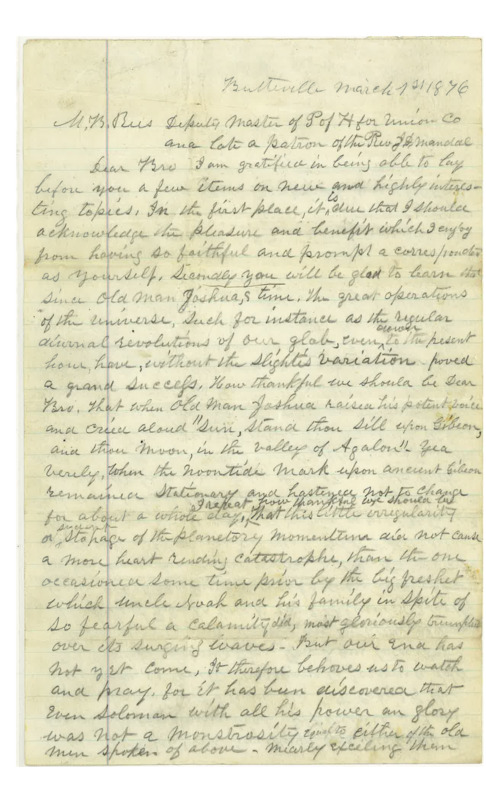 Butteville March 1st 1876
M. B. Rees Deputy Master of P of H for Union Co
and late a patron of the Rev J D Mandal
Dear Bro I am gratified in being able to lay
before you a few items on new and highly interes-
ting topics. In the first place, it is due that I should
acknowledge the pleasure and benefit which I enjoy
from having so faithful and prompt a correspondent
as yourself. Secondly you will be glad to learn that
since Old Man Joshua,s time. The great operations
of the universe, Such for instance as the regular
diurnal revolutions of our glob, even, down to the present
hour, have, without the slightes variation poved
a grand success. How thankful we should be Dear
Bro. that when Old Man Joshua raised his potent voice
and cried aloud "Sun, stand thou still upon Gibeon,
and thou Moon, in the valley of Ajalon". Yea
verily, when the noontide mark upon ancient Gibeon
remained Stationary and hastened not to change
for about a whole day, I repeat how thankful we should be that this little irregularity
or stopage of the planetory momentum did not cause
a more heart rending catastrophe, than the one
occasioned some time prior by the big freshet
which uncle Noah and his family in spite of
so fearful a calamity did, most gloriously triumphed
over its surging waves - But our End has
not yet come, It therefore behoves us to watch
and pray. for it has been discovered that
Even Soloman with all his power an glory
was not a monstrosity either of the old
men spoken of above - mearly exceling them